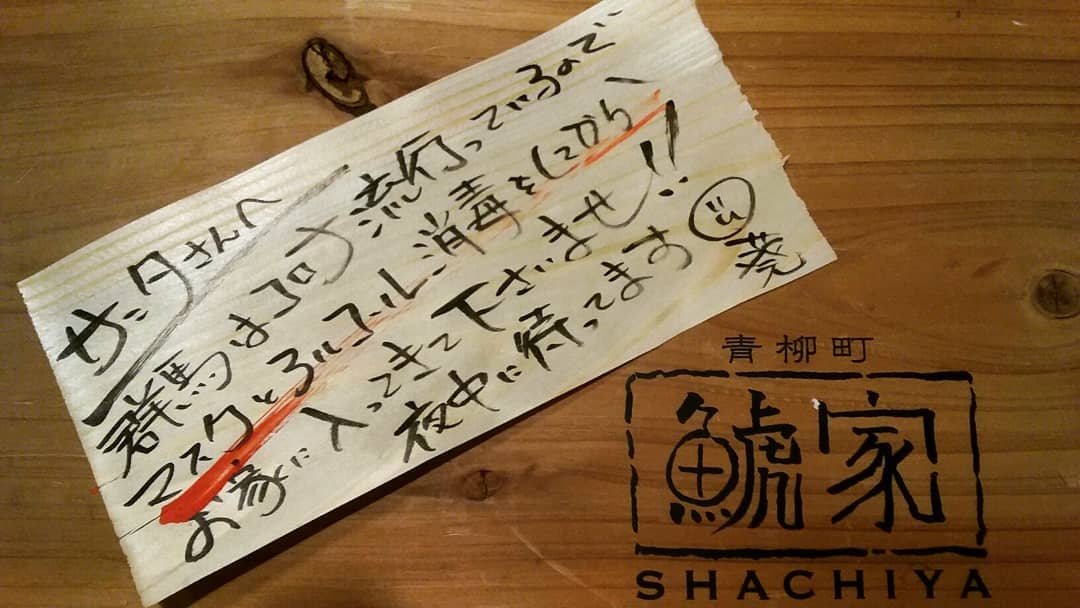 サンタさんへ
群馬はコロナ流行っているので
マスクとアルコール消毒をしてから
お家に入ってきて下さいませ!!
夜中に待ってます
葵
青柳町
鯱家
SHACHIYA